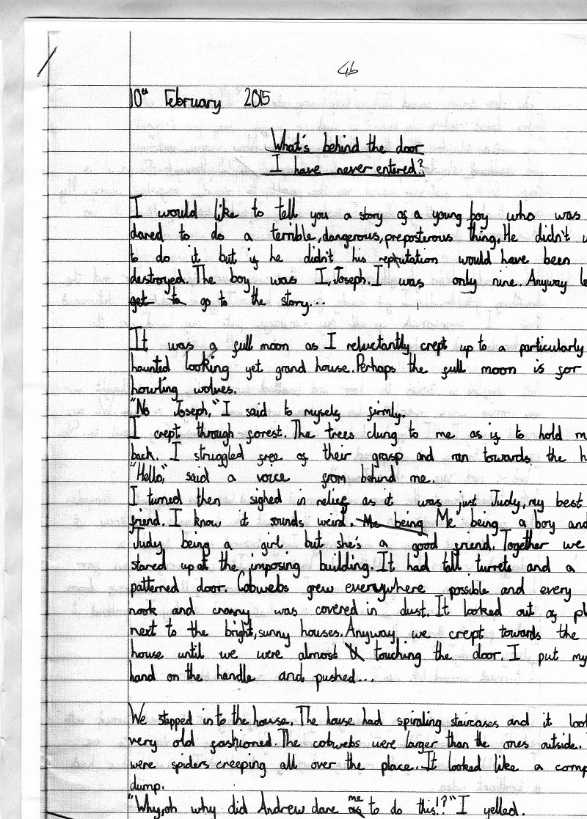 4b
10th February 2015
What's behind the door
I have never entered?
I would like to tell you a story of a young boy who was
dared to do a terrible, dangerous, preposterous thing. He didn't
to do it but if he didn't his reputation would have been
destroyed. The boy was I, Joseph. I was only nine. Anyway
get to go to the story...
It was a full moon as I reluctantly crept up to a particularly
haunted looking yet grand house. Perhaps the full moon is for
howling wolves.
"No Joseph," I said to myself firmly.
I crept through forest. The trees clung to me as if to hold m
back. I struggled free of their grasp and ran towards the h
"Hello," said a voice from behind me.
I turned then sighed in relief as it was just Judy, my best
friend. I know it sounds weird. Me being Me being a boy and
Judy being a girl but she's a good friend. Together we
stared up at the imposing building. It had tall turrets and a
patterned door. Cobwebs grew everywhere possible and every
nook and cranny was covered in dust. It looked out of pl
next to the bright, sunny houses. Anyway we crept towards the
house until we were almost touching the door. I put my
hand on the handle and pushed...
We stepped into the house. The house had spiraling staircases and it loo
very old fashioned. The cobwebs were larger than the ones outside.
were spiders creeping all over the place. It looked like a comp
dump.
"Why, oh why did Andrew dare me to do this!?" I yelled.